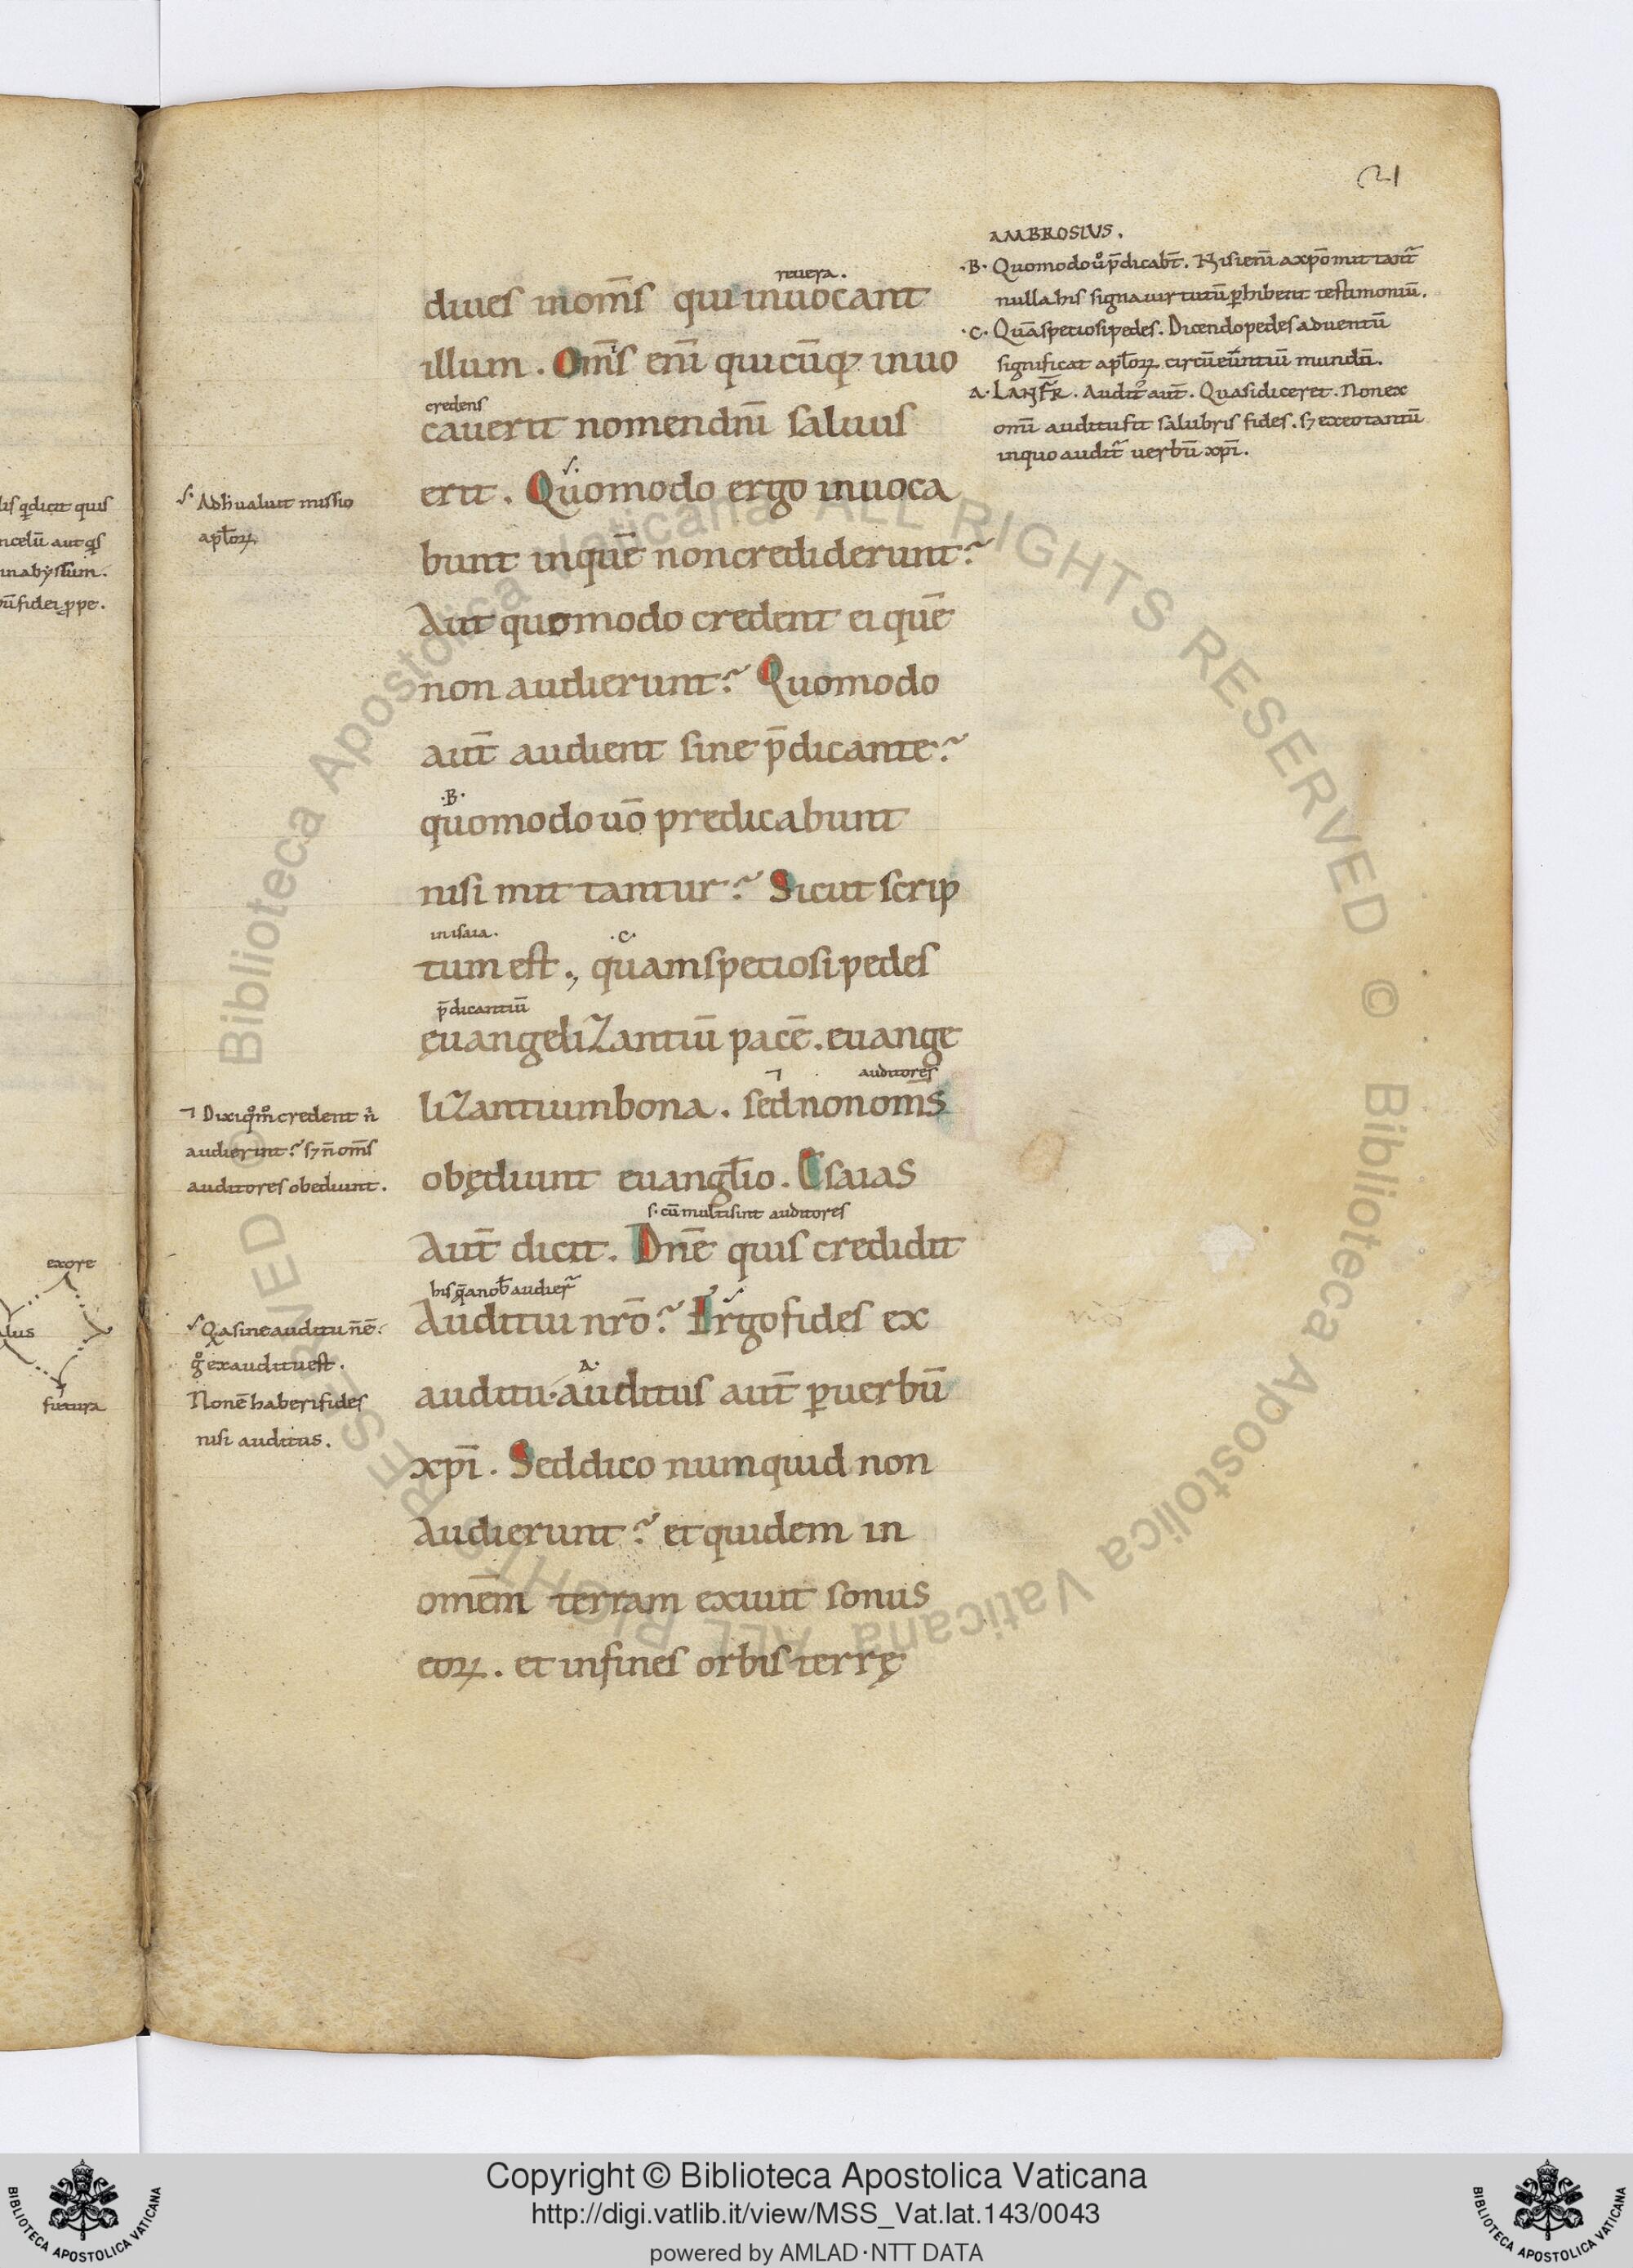 21
AMBROSIUS.
·B· Quomodo uͦ p̄dicabt̄. Nisi eni̅ a xp̄o mittant᷑
nulla his signa uirtutū ꝑhibent testimoniū.
·C· Quā speciosi pedes. Dicendo pedes aduentū
significat apl̄oꝝ circūeūntiū mundū.
A· LANFR̄. Audit᷒ aut̄. Quasi diceret. Non ex
omi̅ auditu fit salubris fides. sꝫ ex eo tantū
in quo audit᷑ uerbū xpi̅.
reuera.
diues in om̄s qui inuocant
illum. Om̄is eni̅ quicūqꝫ inuo
credens
cauerit nomen dni̅ saluus
erit. Quomodo ergo inuoca
bunt in quē non crediderunt?
Aut quomodo credent ei quē
non audierunt? Quomodo
aut̄ audient sine p̄dicante?
·B·
quomodo uō predicabunt
nisi mittantur? Sicut scrip
in isaia. ·C·
tum est., quam speciosi pedes
p̄dicantiū
ęuangeliZantiū pacē. euange
auditores
liZantium bona. sed non om̄s
obędiunt euangl̄io. Esaias
s· cū multi sint auditores
Aut̄ dicit. Dn̄e quis credidit
his q̄ a nob̄ audier᷑
Auditui nr̄o? Ergo fides ex
A·
auditu· auditus aut̄ ꝑ uerbū
xpi̅. Sed dico numquid non
Audierunt? et quidem in
omēm terram exiuit sonus
eoꝝ. et in fines orbis terrę
s· Ad h̄ ualuit missio
apl̄oꝝ
⁊ Dixi qͦmͦ credent n̄
audierint? sꝫ n̄ om̄s
auditores obediunt.
Qa sine auditu n̄ ē.
gͦ ex auditu est.
Non ē haberi fides
nisi auditus.
lis qͥ dicit quis
n celū aut qͥs
in abyssum.
bū fidei ꝓpe.
ex ore
futura
Copyright © Biblioteca Apostolica Vaticana
http://digi.vatlib.it/view/MSS_Vat.lat.143/0043
powered by AMLAD·NTT DATA
BIBLIOTECA APOSTOLICA VATICANA
BIBLIOTECA APOSTOLICA VATICANA
© Biblioteca Apostolica Vaticana ALL RIGHTS RESERVED
© Biblioteca Apostolica Vaticana ALL RIGHTS RESERVED